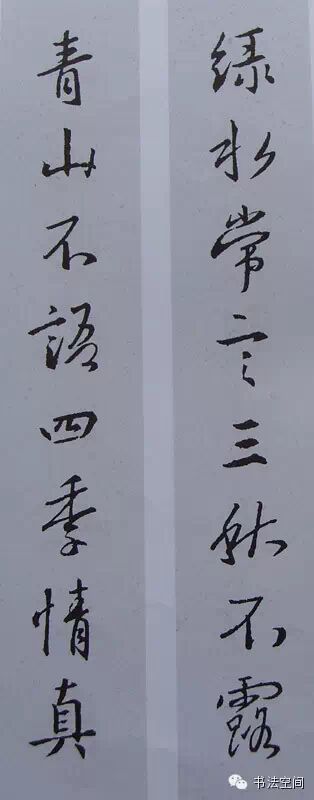 绿水常言三秋不露
青山不語四季情真
书法空间